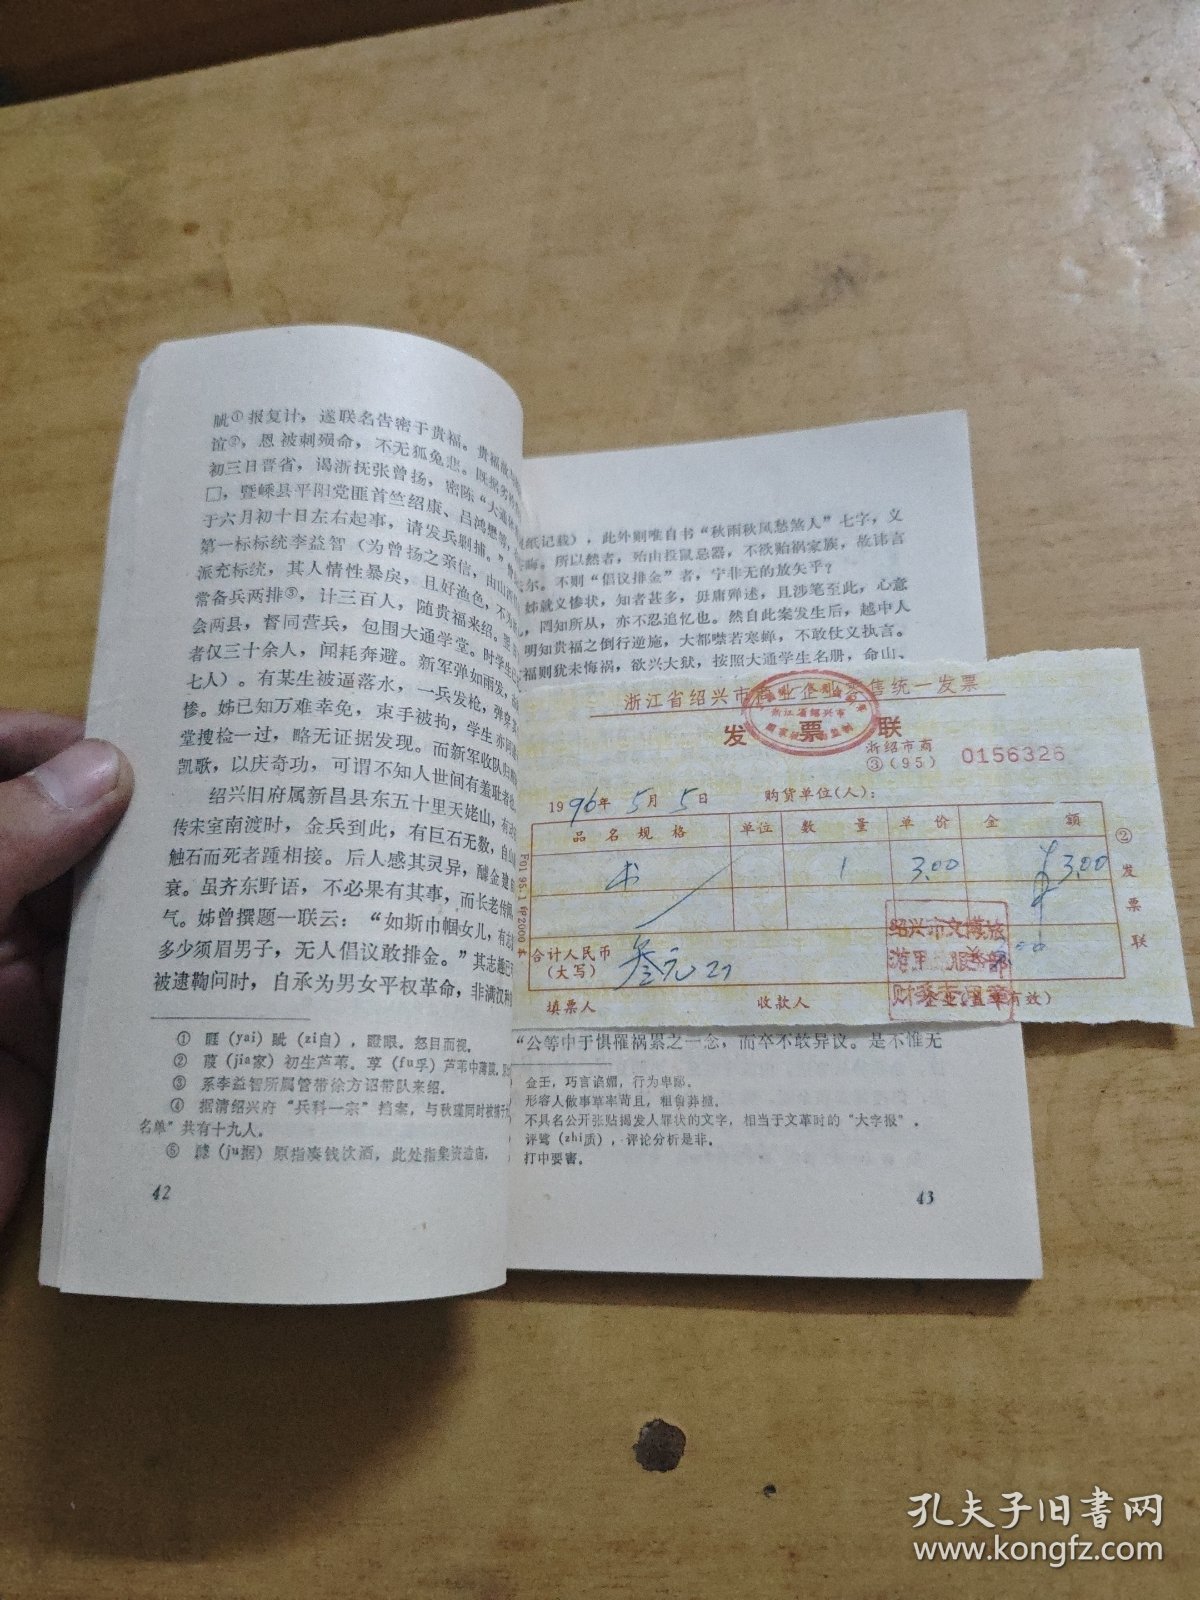 眦①报复计，遂联名告密于贵福。贵福
谊②，恩被刺殒命，不无狐兔悲。既
初三日晋省，谒浙抚张曾扬，密陈“大通
□，暨嵊县平阳党匪首竺绍康、吕鸿懋等，
于六月初十日左右起事，请发兵剿捕。”
第一标标统李益智（为曾扬之亲信，由山
派充标统，其人情性暴戾，且好渔色，不
常备兵两排③，计三百人，随贵福来绍。
会两县，督同营兵，包围大通学堂。时学生已
者仅三十余人，闻耗奔避。新军弹如雨发，
七人）。有某生被逼落水，一兵发枪，弹穿其
惨。姊已知万难幸免，束手被拘，学生亦同
堂搜检一过，略无证据发现。而新军收队归
凯歌，以庆奇功，可谓不知人世间有羞耻者
绍兴旧府属新昌县东五十里天姥山，有
传宋室南渡时，金兵到此，有巨石无数，自山
触石而死者踵相接。后人感其灵异，醵金建
衰。虽齐东野语，不必果有其事，而长老传
气。姊曾撰题一联云：“如斯巾帼女儿，有志
多少须眉男子，无人倡议敢排金。”其志趣已
被逮鞫问时，自承为男女平权革命，非满汉种
① 睚（yai）眦（zi自），瞪眼。怒目而视。
② 葭（jia家）初生芦苇。莩（fu孚）芦苇中薄膜。
③ 系李益智所属管带徐方诏带队来绍。
④ 据清绍兴府“兵科一宗”档案，与秋瑾同时被捕于
名单”共有十九人。
⑤ 醵（ju据）原指凑钱饮酒，此处指集资造庙，
42
纸记载），此外则唯自书“秋雨秋风愁煞人”七字，义
晦。所以然者，殆山投鼠忌器，不欲贻祸家族，故讳言
尔。不则“倡议排金”者，宁非无的放矢乎？
姊就义惨状，知者甚多，毋庸殚述，且涉笔至此，心意
，罔知所从，亦不忍追忆也。然自此案发生后，越中人
明知贵福之倒行逆施，大都噤若寒蝉，不敢仗义执言。
福则犹未悔祸，欲兴大狱，按照大通学生名册，命山、
浙江省绍兴市商业企业零售统一发票
发票联
浙江省绍兴市
浙绍市商
③(95) 0156326
1996年5月5日 购货单位(人)：
品名规格 单位 数量 单价 金额
书 1 3.00 ¥3.00
合计人民币
(大写) 叁元
绍兴市文博旅
填票人 收款人 有效)
②发票联
“公等中于惧罹祸累之一念，而卒不敢异议。是不惟无
金壬，巧言谄媚，行为卑鄙。
形容人做事草率苟且，粗鲁莽撞。
不具名公开张贴揭发人罪状的文字，相当于文革时的“大字报”。
评骘（zhi质），评论分析是非。
打中要害。
43
孔夫子旧书网
www.kongfz.com